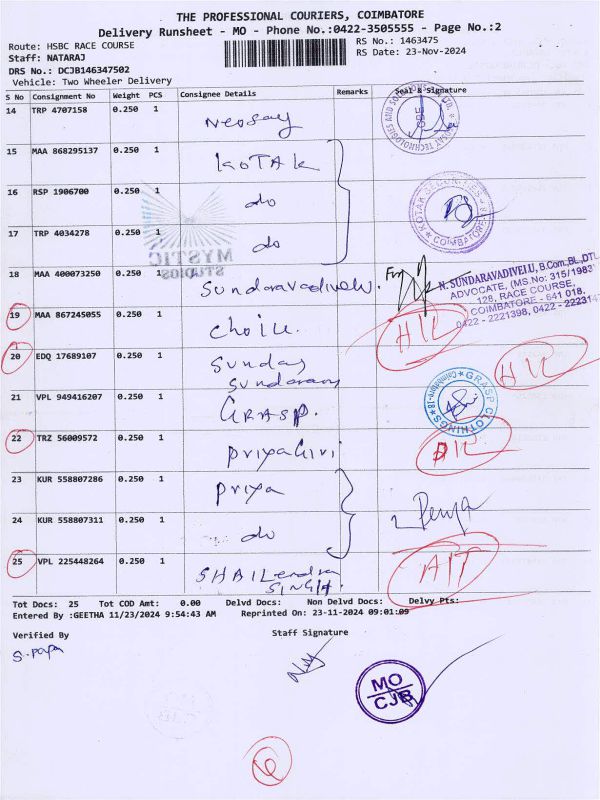 THE PROFESSIONAL COURIERS, COIMBATORE
Delivery Runsheet - MO - Phone No.:0422-3505555 - Page No.:2
Route: HSBC RACE COURSE
RS No.: 1463475
Staff: NATARAJ
RS Date: 23-Nov-2024
DRS No.: DCJB146347502
Vehicle: Two Wheeler Delivery
S No Consignment No Weight PCS Consignee Details Remarks Seal & Signature
14 TRP 4707158 0.250 1
15 MAA 868295137 0.250 1 KOTAK
16 RSP 1906700 0.250 1 do
KOTAK SECURITIES
COIMBATORE
17 TRP 4034278 0.250 1 do
MYSTIC
STUDIOS
18 MAA 400073250 0.250 1 Sundaravadivelu.
For
N. SUNDARAVADIVELU, B.Com.,BL.,DTL
ADVOCATE, (MS.No: 315/1983)
128, RACE COURSE,
COIMBATORE - 641 018.
0422 - 2221398, 0422 - 22231
19 MAA 867245055 0.250 1 choice.
20 EDQ 17689107 0.250 1 Sunday
Sundaram
21 VPL 949416207 0.250 1 GRASP.
GRASP CLOTHINGS
Coimbatore-18
22 TRZ 56009572 0.250 1 PriyaGiri
23 KUR 558807286 0.250 1 Priya
24 KUR 558807311 0.250 1 do
25 VPL 225448264 0.250 1 SHAILendra
SINGH.
Tot Docs: 25 Tot COD Amt: 0.00 Delvd Docs: Non Delvd Docs: Delvy Pts:
Entered By :GEETHA 11/23/2024 9:54:43 AM Reprinted On: 23-11-2024 09:01:09
Verified By
Staff Signature
MO
CJB
6